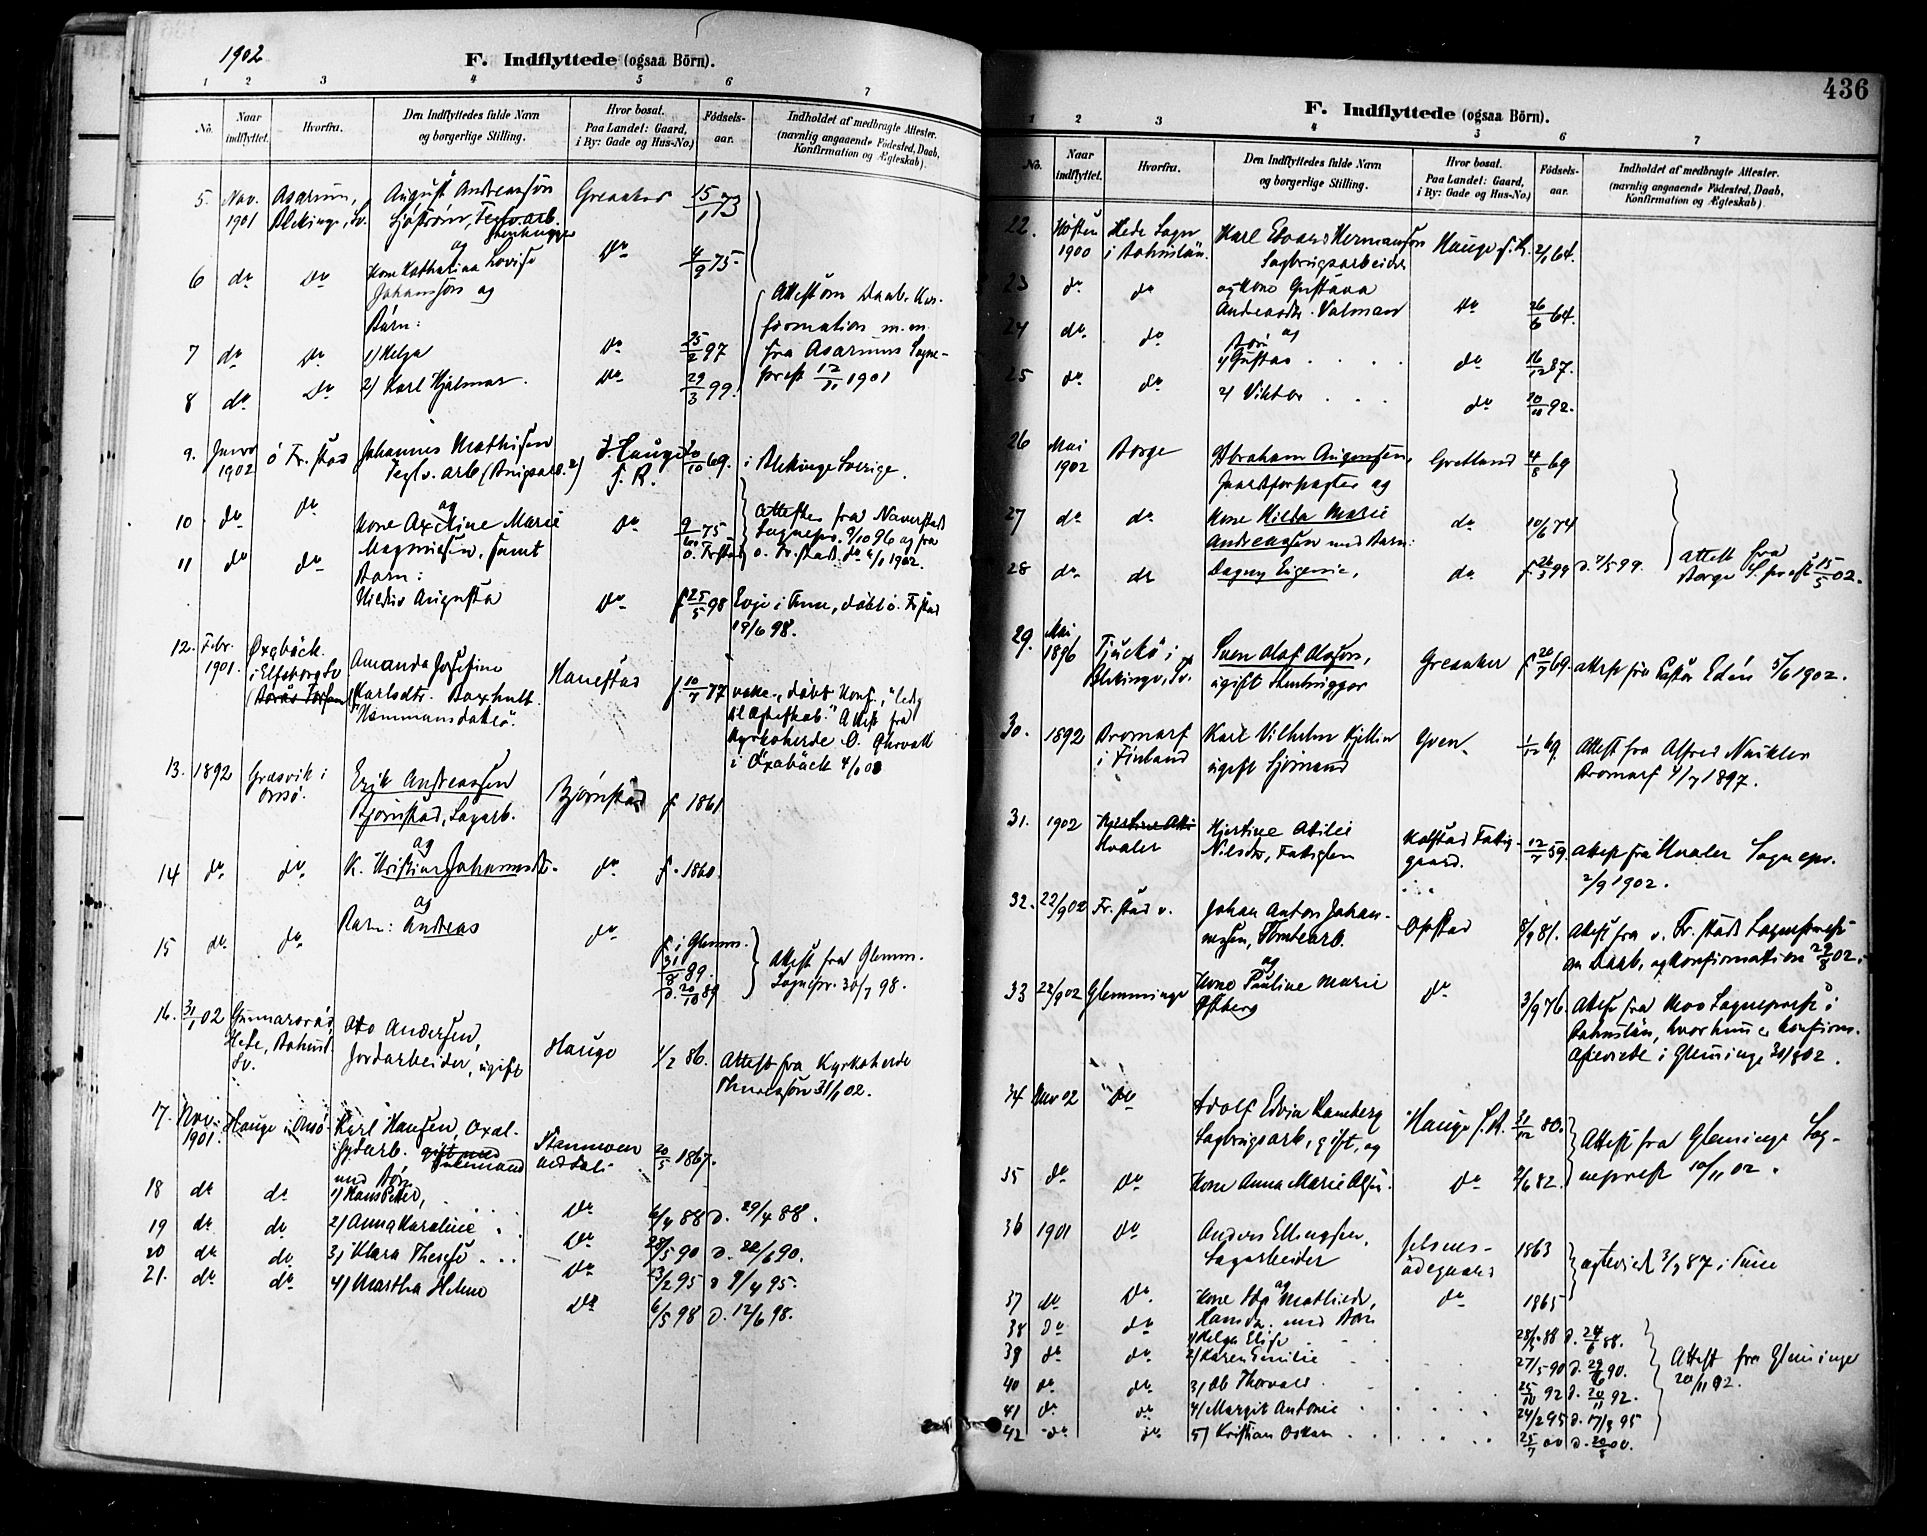 1902
F. Indflyttede (ogsaa Börn).
1 2 3 4 5 6 7
No.
Naar
indflyttet.
Hvorfra.
Den Indflyttedes fulde Navn
og borgerlige Stilling.
Hvor bosat.
Paa Landet: Gaard,
i By: Gade og Hus-No.)
Födsels-
aar.
Indholdet af medbragte Attester.
(navnlig angaaende Födested, Daab,
Konfirmation og Ægteskab).
5. Nov. Asarum, August Andreassøn Greaaker 15/1 73
1901 Blekinge, Sv. Sjöström, Teglv.arb.
Stenhugger
og
6 do Do Kone Katharina Lovise Do 4/9 75.
Johansson og
Barn:
7 do Do 1) Helga Do 25/2 97
8 do Do 2) Karl Hjalmar. Do 29/3 99.
Attest om Daab, Kon-
firmation m.m.
fra Asarums Sogne-
prest 12/11 1901
9. Janr ö Fr.stad Johannes Mathisen Hauge 69. i Blekinge Sverige.
1902 Teglv. arb f. R.
og
10 do do Kone Axeline Marie Do 9/10 75
Magnussen, samt ö. Frstad
11 do do Barn:
Hildur Augusta Do f 25/5 98 döbt ö. Frstad
19/6 98.
Attester fra Naverstad
Sognepr. 9/10 96 og fra
o. Fr.stad do 4/1 1902.
12. Febr. Øxabäck Amanda Josefine Hannestad f. 10/7 77
1901. i Elfsborgs Karlsdtr. Boxhult
Hemmansdatter.
vakc., döbt Konf., "ledig
til Ægteskab." Attest fra
Kyrkoherde O.
i Öxabäck
13. 1892 Græsvik i Erik Andreassen Bjørnstad f. 1861
Onsö. Bjørnstad, Sagarb.
og
14 do do K. Kristine Johannesdtr. do f. 1860.
og
15 do do Barn: Andreas do f. i Glemm.
31/8 89.
D. 20/10 89
Attest fra Glemm.
Sognepr. 30/7 98.
16. 31/1 02 Gunnarsröd, Otto Andersen, Hauge 1/2 86.
Hede, Bohusl. Jordarbeider, ugift
Sv.
Attest fra Kyrkoherde
31/1 02.
17. Nov. Hauge i Onsö Karl Hansen, Oxal- 20/5 1867.
1901. syrarb. gift med
Enkemand
med Börn
18 do do 1) Hans Peter, Do 6/4 88 D. 29/4 88.
19 do do 2) Anna Karoline Do 28/5 90 D. 22/6 90.
20 do do 3) Klara Therese Do 23/2 95 D 9/4 95.
21. do do 4) Martha Helene Do 6/5 98 D. 12/6 98.
436
F. Indflyttede (ogsaa Börn).
1 2 3 4 5 6 7
No.
Naar
indflyttet.
Hvorfra.
Den Indflyttedes fulde Navn
og borgerlige Stilling.
Hvor bosat.
Paa Landet: Gaard,
i By: Gade og Hus-No.)
Födsels-
aar.
Indholdet af medbragte Attester.
(navnlig angaaende Födested, Daab,
Konfirmation og Ægteskab).
22. Høsten Hede Sogn Karl Edvard Hermansson Hauge f. R. 2/1 64.
1900 i Bohuslän. Sagbrugsarbeider
23 do do og Kone Gustava
Andreasdtr. Valman Do 26/6 64.
24 do. do Börn og
1) Gustav do 16/12 87.
25 do do 2) Viktor do 20/10 92.
26 Mai Borge Abraham Augensen, Gretland 4/8 69
1902 Gaardforpagter og
27 do do Kone Hilda Marie do 10/6 74
Andreassen med Barn:
28 do do Dagny Eugenie, do f. 26/3 99 D. 7/5 99.
Attest fra
Borge S.prest 15/5 02.
29. Mai Tjuckö i Sven Olof Olofson, Greaaker f. 20/7 69. Attest fra Pastor Edén 5/6 1902.
1896 Blekinge, Sv. ugift Stenhugger
30. 1892 Bromarf Karl Vilhelm Kjellin Gven 1/12 69. Attest fra Alfred
i Finland ugift Sjömand Bromarf 4/7 1897.
31. 1902 Hvaler Kjerstine Otilie Kalstad Fattig- 12/7 59. Attest fra Hvaler Sognepr.
Nilsdtr, Fattiglem gaard. 2/9 1902.
32. 22/9 02 Fr.stad v. Johan Anton Johan- Opstad 8/9 81. Attest fra v. Fr.stads Sogneprest
nessen, Tomtearb. om Daab, og Konfirmation 29/8 02.
og
33 22/9 02 Glemminge Kone Pauline Marie do 3/9 76 Attest fra Mos Sogneprest i
Østberg Bohuslän, hvor hun er konfirm.
Ægteviede i Glemminge 30/8 02.
34 Nov 02 Do Adolf Edvin Ramberg Hauge f. R. 31/12 80.
Sagbrugsarb, gift, og
35 do Do Kone Anna Marie Olsen. Do 9/6 82.
Attest fra Glemminge Sog-
neprest 10/11 02.
36 1901 Do Anders Ellingsen, 1863 ægteviede 3/7 87 i Tune
Sagarbeider ödegaard
og
37 do Do. Kone Ida Mathilde, do 1865
Hansdtr. med Börn
38 do do 1) Helga Elise 28/3 88 D. 24/6 88.
39 do do 2) Karen Emilie 27/5 90 D. 29/6 90.
40 do do 3) Ole Thorvald 25/10 92 D. 20/11 92.
41 do do 4) Margit Antonie 24/2 95 D. 17/3 95
42 do do 5) Kristian Oskar 25/7 00 D. 20/8 00.
Attest fra Glemminge
20/11 02.